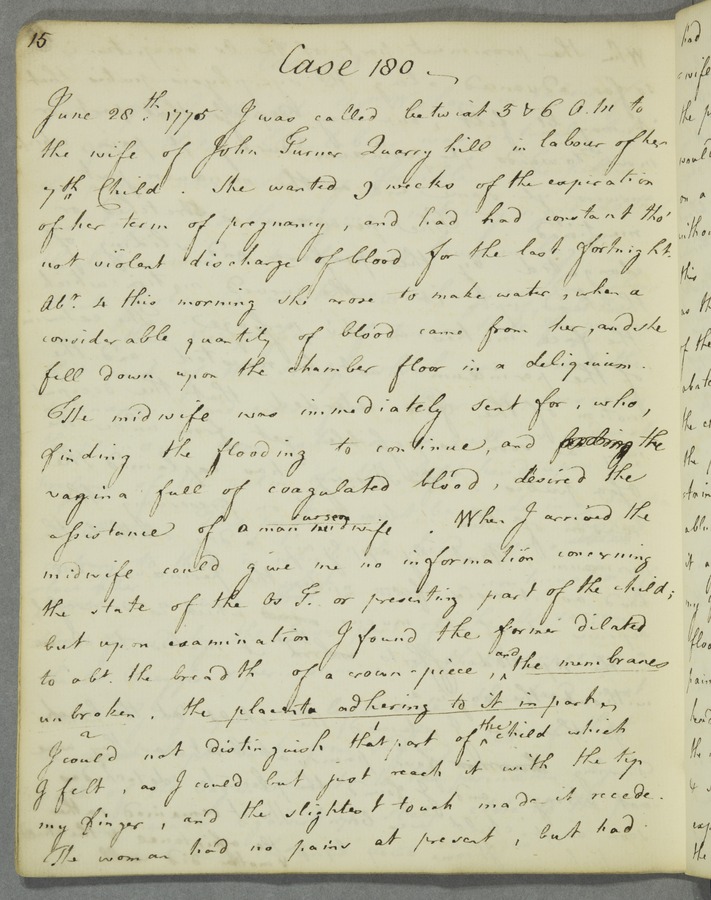 15
Case 180
June 28th. 1775 I was called betwixt 5 & 6 A.M to
the wife of John Turner Quarry hill in labour of her
7th Child. She wanted 9 weeks of the expiration
of her term of pregnancy, and had had constant tho'
not violent discharge of blood for the last fortnight.
Abt. 4 this morning she arose to make water, when a
considerable quantity of blood came from her, and she
fell down upon the chamber floor in a deliquium.
The midwife was immediately sent for, who,
finding the flooding to continue, and the
vagina full of coagulated blood, desired the
assistance of a man midwife surgeon. When I arrived the
midwife could give me no information concerning
the state of the Os T. or presenting part of the child;
but upon examination I found the former dilated
to abt. the breadth of a crown-piece, and the membranes
unbroken. the placenta adhering to it in part,
I could not distinguish that part of the child which
I felt, as I could but just reach it with the tip
my finger, and the slightest touch made it recede.
The woman had no pains at present, but had